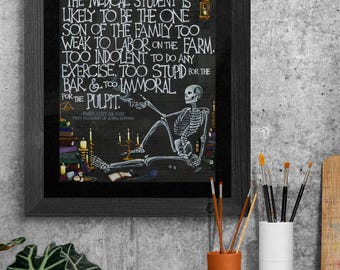 THE MEDICAL STUDENT IS
LIKELY TO BE THE ONE
SON OF THE FAMILY TOO
WEAK TO LABOR ON THE FARM,
TOO INDOLENT TO DO ANY
EXERCISE, TOO STUPID FOR THE
BAR & TOO IMMORAL
FOR THE PULPIT.
FIRST PRESIDENT OF JOHNS HOPKINS